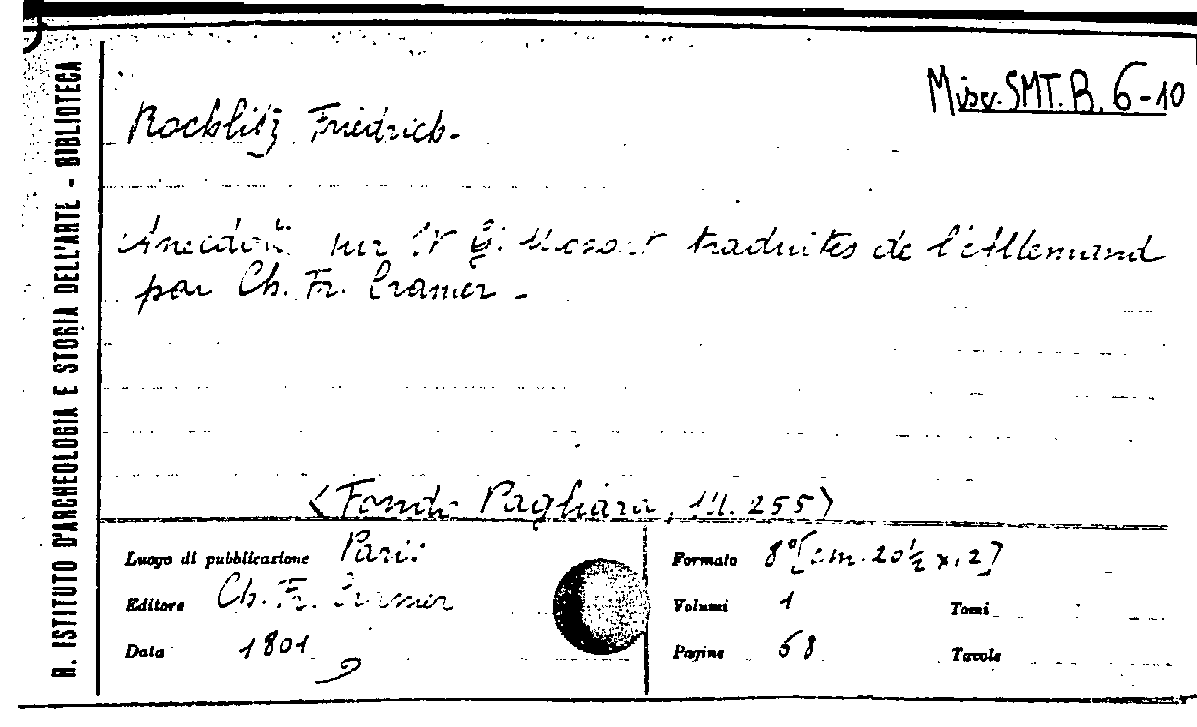 R. ISTITUTO D'ARCHEOLOGIA E STORIA DELL'ARTE - BIBLIOTECA
Misc. SMT. B. 6-10
Rochlitz Friedrich.
Anecdotes sur W. G. Mozart traduites de l'Allemand
par Ch. Fr. Cramer -
<Fondo Pagliara, 255>
Luogo di pubblicazione Paris
Formato 8° [cm. 20½ x 12]
Editore Ch. Fr. Cramer
Volumi 1 Tomi
Data 1801
Pagine 68 Tavole